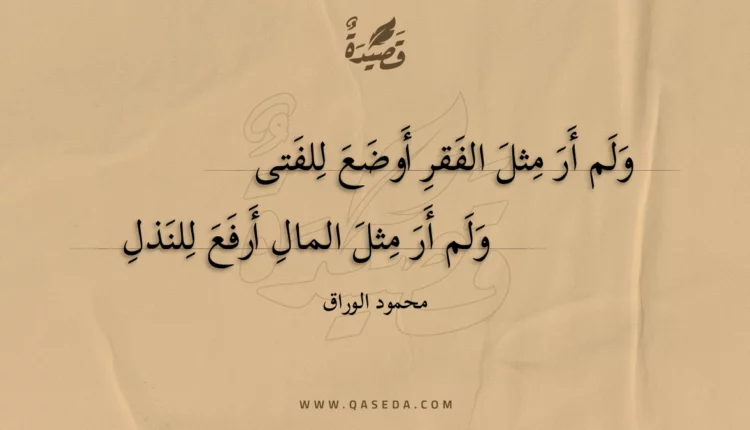 قَصِيدَةٌ
وَلَم أَرَ مِثلَ الفَقرِ أَوضَعَ لِلفَتى
وَلَم أَرَ مِثلَ المالِ أَرفَعَ لِلنَذلِ
محمود الوراق
WWW.QASEDA.COM